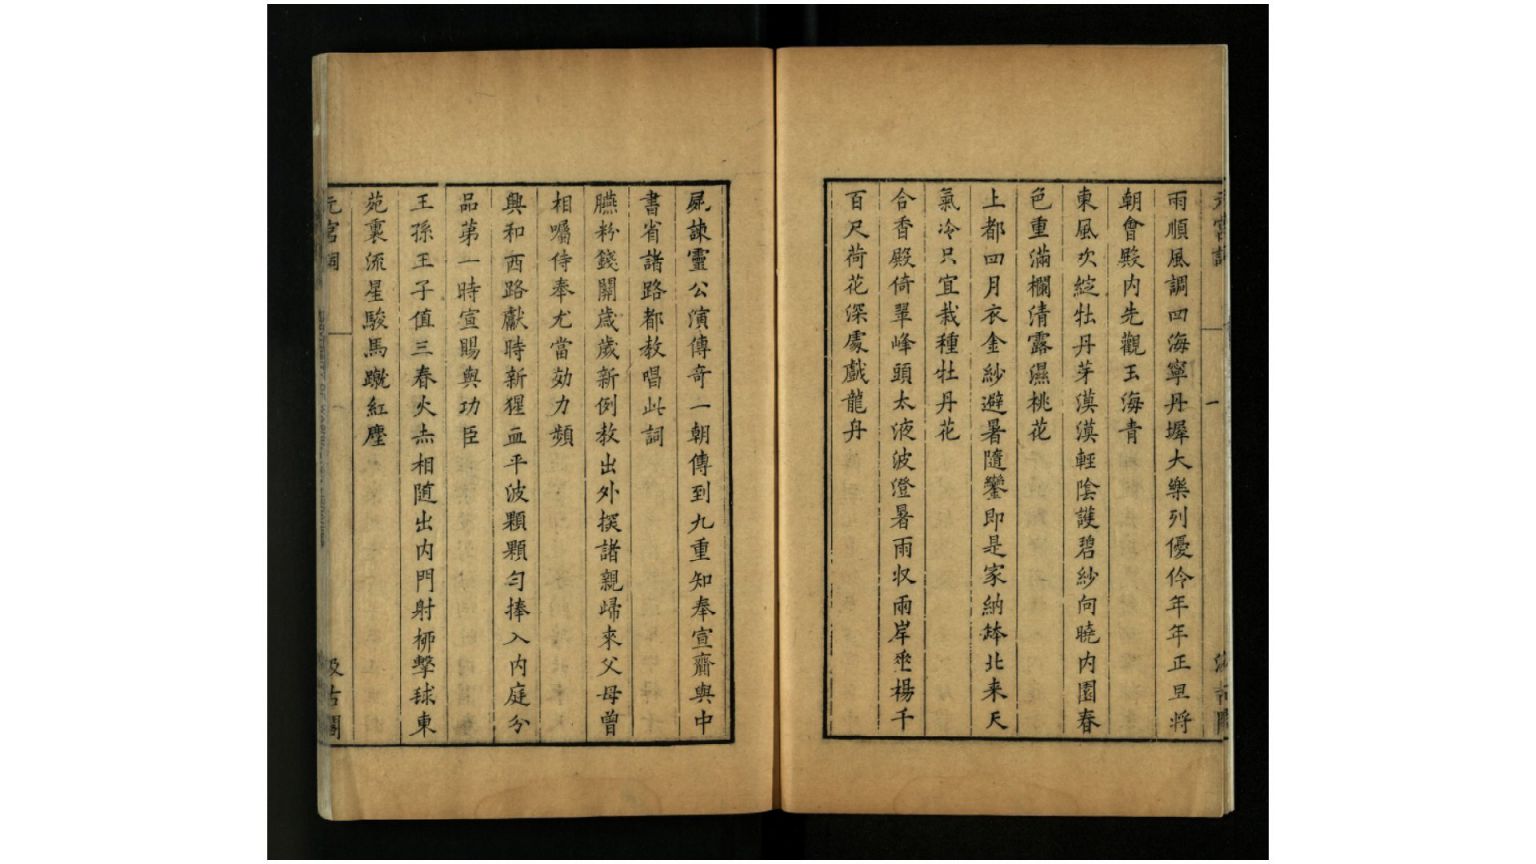 元宮詞
一
汲古閣
雨順風調四海寧丹墀大樂列優伶年年正旦將
朝會殿内先觀玉海青
東風吹綻牡丹芽漠漠輕陰護碧紗向曉内園春
色重滿欄清露濕桃花
上都四月衣金紗避暑隨鑾即是家納鉢北来天
氣冷只宜栽種牡丹花
合香殿倚翠峰頭太液波澄暑雨収兩岸垂楊千
百尺荷花深處戲龍舟
屍諫靈公演傳奇一朝傳到九重知奉宣齎與中
書省諸路都教唱此詞
臙粉錢關歲歲新例教出外探諸親歸來父母曾
相囑侍奉尤當効力頻
興和西路獻時新猩血平波顆顆勻捧入内庭分
品第一時宣賜與功臣
王孫王子值三春火赤相随出内門射栁擊毬東
苑裏流星駿馬蹴紅塵
元宮詞
汲古閣